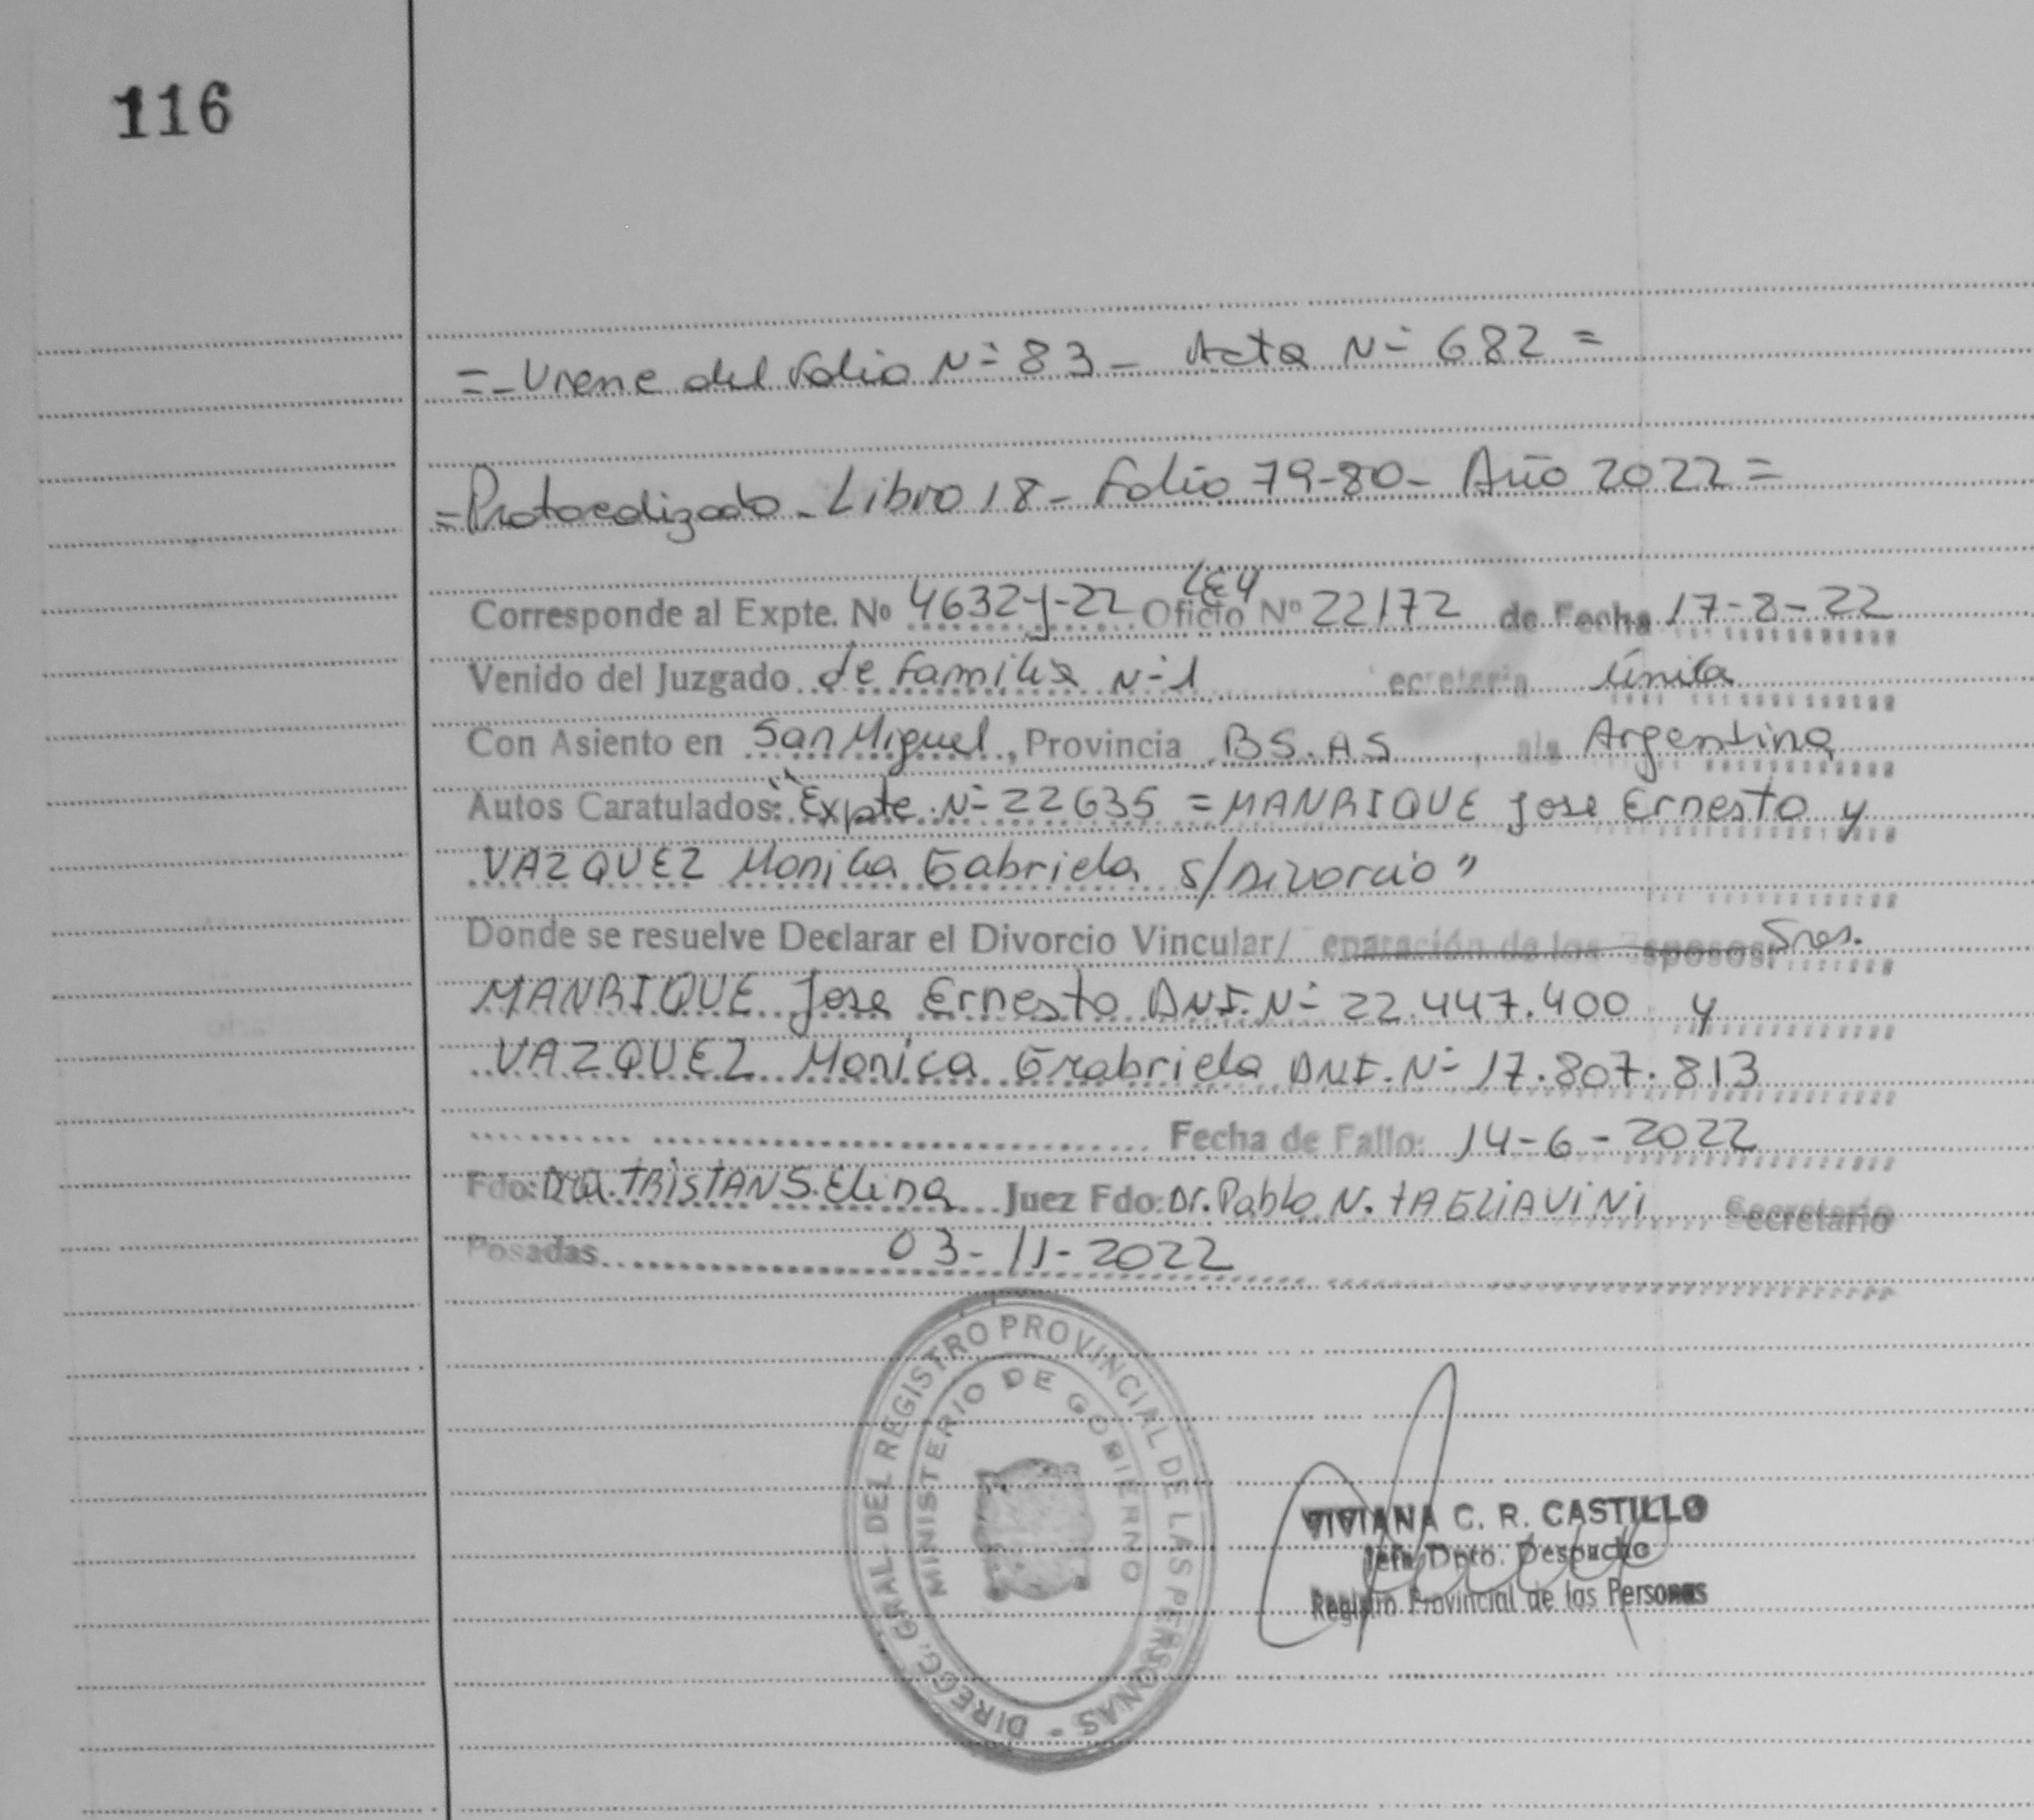 116
=-Viene del folio N= 83- Acta N= 682 =
=Protocolizado_ Libro 18_ folio 79-80- Año 2022=
Corresponde al Expte. No 4632-J-22 Oficio LEY Nº 22172 de Fecha 17-8-22
Venido del Juzgado de familia N=1 ecretaria única
Con Asiento en San Miguel, Provincia BS.AS, Argentina
Autos Caratulados: "Expte. N= 22635 = MANRIQUE Jose Ernesto y
VAZQUEZ Monica Gabriela S/Divorcio"
Donde se resuelve Declarar el Divorcio Vincular/ eparación de los esposos: Sres.
MANRIQUE Jose Ernesto DNI.N= 22.447.400 y
VAZQUEZ Monica Grabriela DNI.N= 17.807.813
Fecha de Fallo: 14-6-2022
Fdo: Dra. TRISTAN S. Elena Juez Fdo: Dr. Pablo N. TAGLIAVINI Secretario
Posadas 03-11-2022
DIRECC. GRAL. DEL REGISTRO PROVINCIAL DE LAS PERSONAS -
MINISTERIO DE GOBIERNO
VIVIANA C. R. CASTILLO
Jefa Dpto. Despacho
Registro Provincial de las Personas